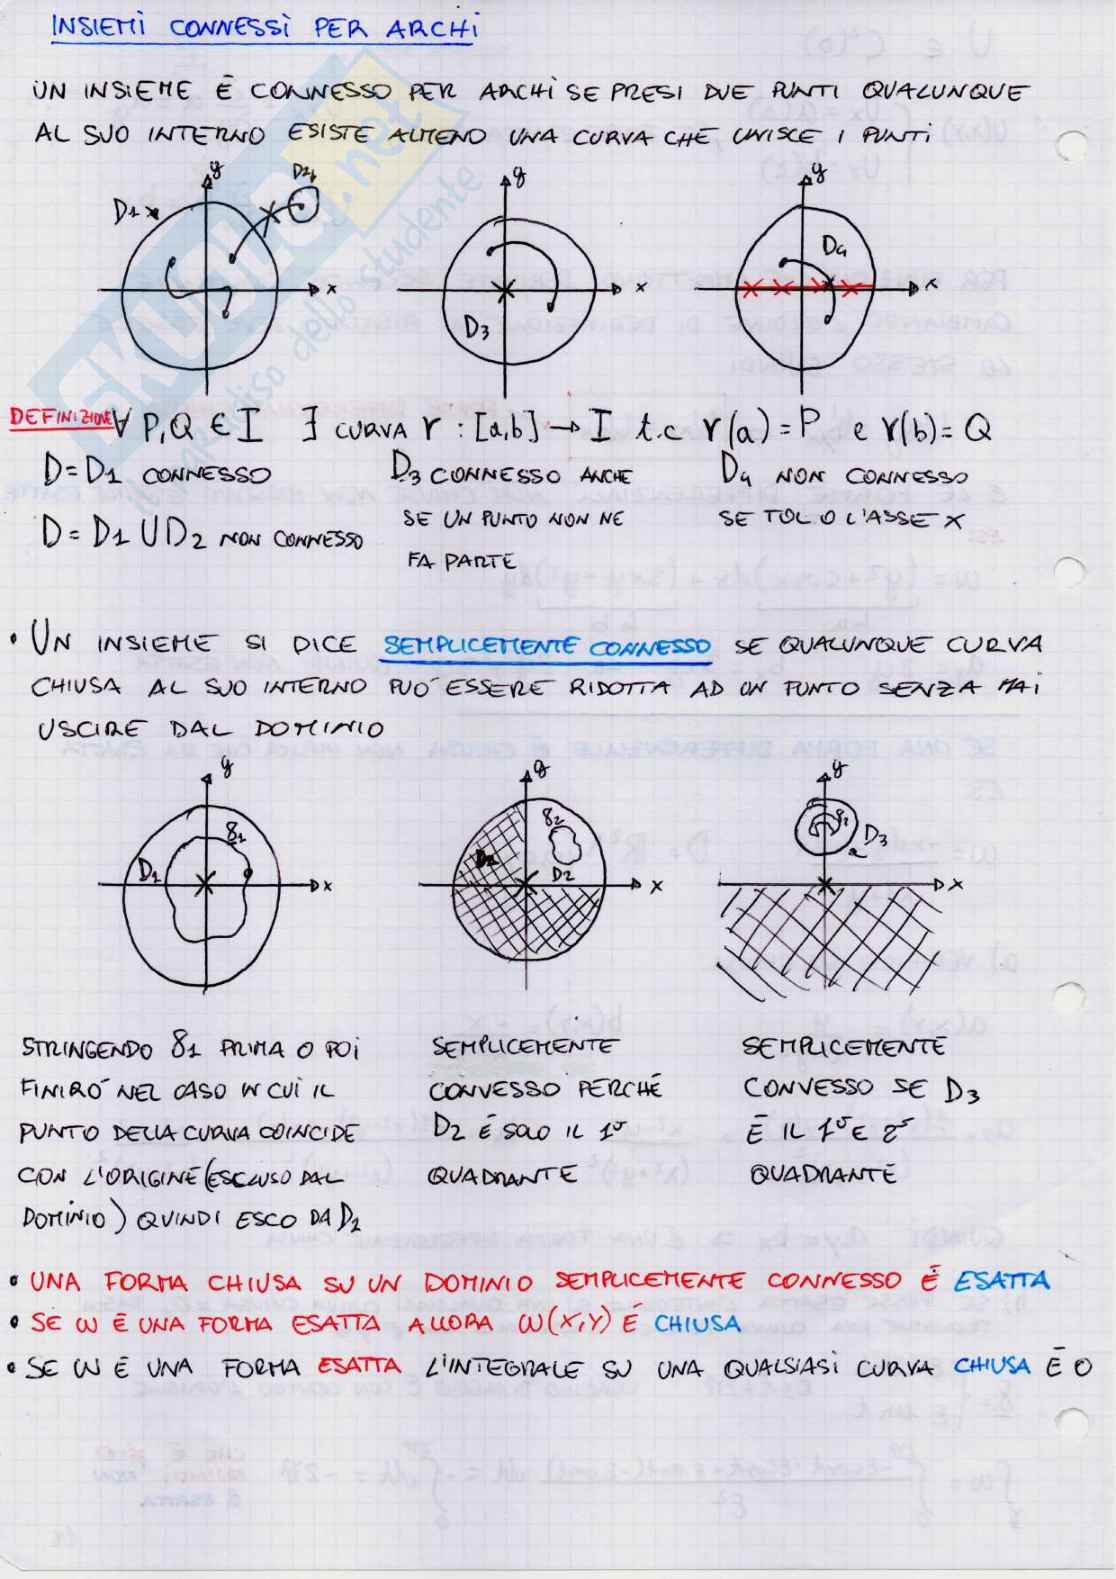 INSIEMI CONNESSI PER ARCHI
UN INSIEME È CONNESSO PER ARCHI SE PRESI DUE PUNTI QUALUNQUE
AL SUO INTERNO ESISTE ALMENO UNA CURVA CHE UNISCE I PUNTI
y D2 y y
D1 D4
x x x
D3
DEFINIZIONE ∀ P,Q ∈ I ∃ CURVA r : [a,b] → I t.c r(a) = P e r(b) = Q
D=D1 CONNESSO D3 CONNESSO ANCHE D4 NON CONNESSO
SE UN PUNTO NON NE SE TOLGO L'ASSE X
D = D1 ∪ D2 NON CONNESSO
FA PARTE
• UN INSIEME SI DICE SEMPLICEMENTE CONNESSO SE QUALUNQUE CURVA
CHIUSA AL SUO INTERNO PUO' ESSERE RIDOTTA AD UN PUNTO SENZA MAI
USCIRE DAL DOMINIO
y y y
γ1 γ2 D3
D1 D2
x x x
STRINGENDO γ1 PRIMA O POI SEMPLICEMENTE SEMPLICEMENTE
FINIRO' NEL CASO IN CUI IL CONVESSO PERCHÉ CONVESSO SE D3
PUNTO DELLA CURVA COINCIDE D2 È SOLO IL 1° È IL 1° E 2°
CON L'ORIGINE (ESCLUSO DAL QUADRANTE QUADRANTE
DOMINIO) QUINDI ESCO DA D2
• UNA FORMA CHIUSA SU UN DOMINIO SEMPLICEMENTE CONNESSO È ESATTA
• SE ω È UNA FORMA ESATTA ALLORA ω(X,Y) È CHIUSA
• SE ω È UNA FORMA ESATTA L'INTEGRALE SU UNA QUALSIASI CURVA CHIUSA È 0
SKUOLA.net
il paradiso dello studente